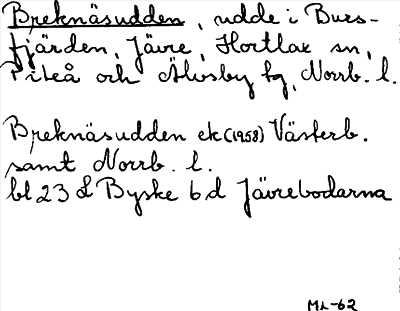 Breknäsudden, udde i Burs-
fjärden, Jävre, Hortlax sn,
Piteå och Älvsby tg, Norrb. l.
Breknäsudden ek (1958) Västerb.
samt Norrb. l.
bl 23 L Byske 6 d Jävrebodarna
ML-62